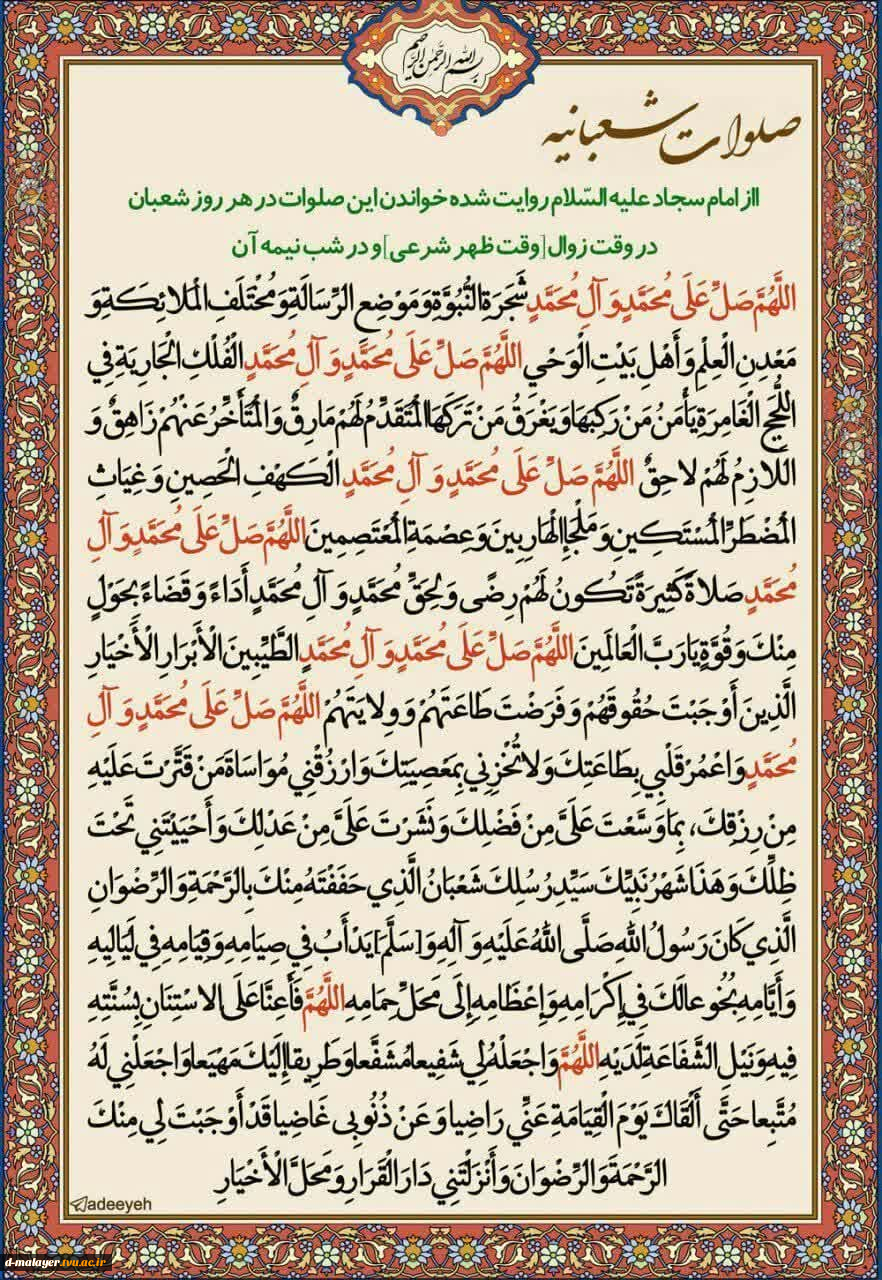 بسم الله الرحمن الرحیم
صلوات شعبانیه
ااز امام سجاد علیه السّلام روایت شده خواندن این صلوات در هر روز شعبان
در وقت زوال [وقت ظهر شرعی] و در شب نیمه آن
اللَّهُمَّ صَلِّ عَلَى مُحَمَّدٍ وَ آلِ مُحَمَّدٍ شَجَرَةِ النُّبُوَّةِ وَ مَوْضِعِ الرِّسَالَةِ وَ مُخْتَلَفِ الْمَلائِكَةِ وَ
مَعْدِنِ الْعِلْمِ وَ أَهْلِ بَيْتِ الْوَحْيِ اللَّهُمَّ صَلِّ عَلَى مُحَمَّدٍ وَ آلِ مُحَمَّدٍ الْفُلْكِ الْجَارِيَةِ فِي
اللُّجَجِ الْغَامِرَةِ يَأْمَنُ مَنْ رَكِبَهَا وَ يَغْرَقُ مَنْ تَرَكَهَا الْمُتَقَدِّمُ لَهُمْ مَارِقٌ وَ الْمُتَأَخِّرُ عَنْهُمْ زَاهِقٌ وَ
اللازِمُ لَهُمْ لاحِقٌ اللَّهُمَّ صَلِّ عَلَى مُحَمَّدٍ وَ آلِ مُحَمَّدٍ الْكَهْفِ الْحَصِينِ وَ غِيَاثِ
الْمُضْطَرِّ الْمُسْتَكِينِ وَ مَلْجَإِ الْهَارِبِينَ وَ عِصْمَةِ الْمُعْتَصِمِينَ اللَّهُمَّ صَلِّ عَلَى مُحَمَّدٍ وَ آلِ
مُحَمَّدٍ صَلاةً كَثِيرَةً تَكُونُ لَهُمْ رِضًى وَ لِحَقِّ مُحَمَّدٍ وَ آلِ مُحَمَّدٍ أَدَاءً وَ قَضَاءً بِحَوْلٍ
مِنْكَ وَ قُوَّةٍ يَا رَبَّ الْعَالَمِينَ اللَّهُمَّ صَلِّ عَلَى مُحَمَّدٍ وَ آلِ مُحَمَّدٍ الطَّيِّبِينَ الْأَبْرَارِ الْأَخْيَارِ
الَّذِينَ أَوْجَبْتَ حُقُوقَهُمْ وَ فَرَضْتَ طَاعَتَهُمْ وَ وِلايَتَهُمْ اللَّهُمَّ صَلِّ عَلَى مُحَمَّدٍ وَ آلِ
مُحَمَّدٍ وَ اعْمُرْ قَلْبِي بِطَاعَتِكَ وَ لا تُخْزِنِي بِمَعْصِيَتِكَ وَ ارْزُقْنِي مُوَاسَاةَ مَنْ قَتَّرْتَ عَلَيْهِ
مِنْ رِزْقِكَ، بِمَا وَسَّعْتَ عَلَيَّ مِنْ فَضْلِكَ وَ نَشَرْتَ عَلَيَّ مِنْ عَدْلِكَ وَ أَحْيَيْتَنِي تَحْتَ
ظِلِّكَ وَ هَذَا شَهْرُ نَبِيِّكَ سَيِّدِ رُسُلِكَ شَعْبَانُ الَّذِي حَفَفْتَهُ مِنْكَ بِالرَّحْمَةِ وَ الرِّضْوَانِ
الَّذِي كَانَ رَسُولُ اللَّهِ صَلَّى اللَّهُ عَلَيْهِ وَ آلِهِ وَ [سَلَّمَ] يَدْأَبُ فِي صِيَامِهِ وَ قِيَامِهِ فِي لَيَالِيهِ
وَ أَيَّامِهِ بُخُوعا لَكَ فِي إِكْرَامِهِ وَ إِعْظَامِهِ إِلَى مَحَلِّ حِمَامِهِ اللَّهُمَّ فَأَعِنَّا عَلَى الاسْتِنَانِ بِسُنَّتِهِ
فِيهِ وَ نَيْلِ الشَّفَاعَةِ لَدَيْهِ اللَّهُمَّ وَ اجْعَلْهُ لِي شَفِيعا مُشَفَّعا وَ طَرِيقا إِلَيْكَ مَهْيَعا وَ اجْعَلْنِي لَهُ
مُتَّبِعا حَتَّى أَلْقَاكَ يَوْمَ الْقِيَامَةِ عَنِّي رَاضِيا وَ عَنْ ذُنُوبِی غَاضِيا قَدْ أَوْجَبْتَ لِي مِنْكَ
الرَّحْمَةَ وَ الرِّضْوَانَ وَ أَنْزَلْتَنِي دَارَ الْقَرَارِ وَ مَحَلَّ الْأَخْيَارِ
adeeyeh
d-malayer.tvu.ac.ir